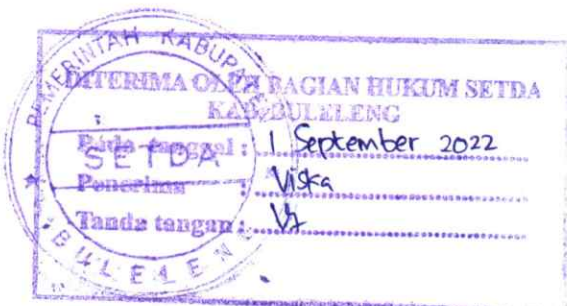 PEMERINTAH KABUPATEN
SETDA
BULELENG
DITERIMA OLEH BAGIAN HUKUM SETDA
KAB. BULELENG
Pada tanggal : 1 September 2022
Penerima : Viska
Tanda tangan :